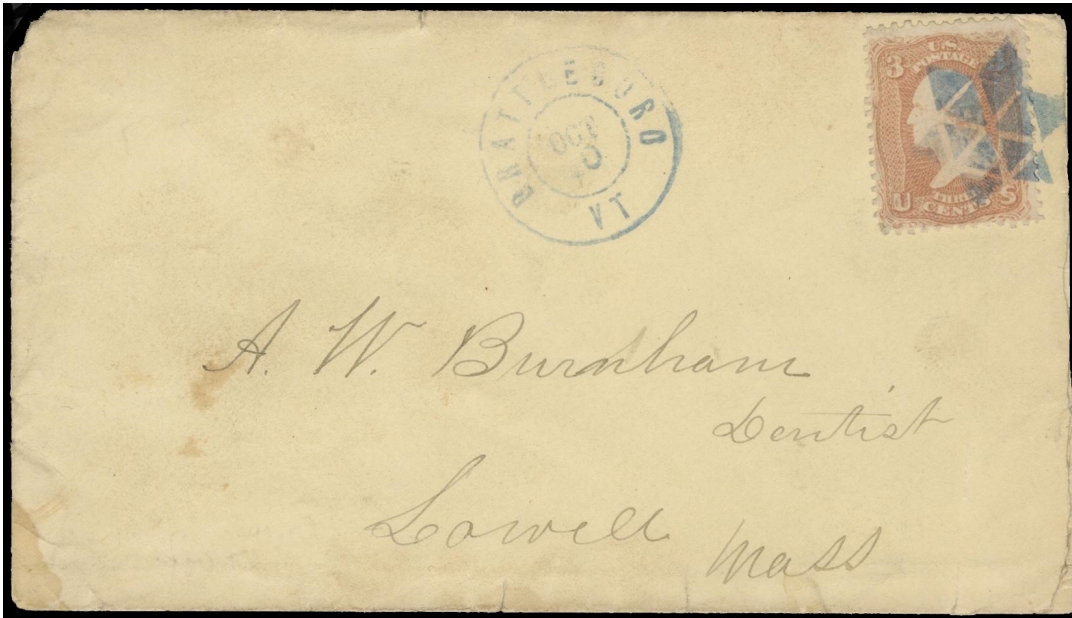 BRATTLEBORO
OCT
VT
U.S.
POSTAGE
3
U S
CENTS
A. W. Burnham
Dentist
Lowell Mass